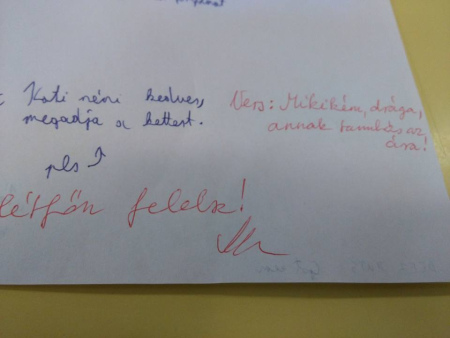 Kati néni kedves,
megadja a kettest.
pls
Vers: Mikikém, drága,
annak tanulás az
ára!
létfőn felelsz!